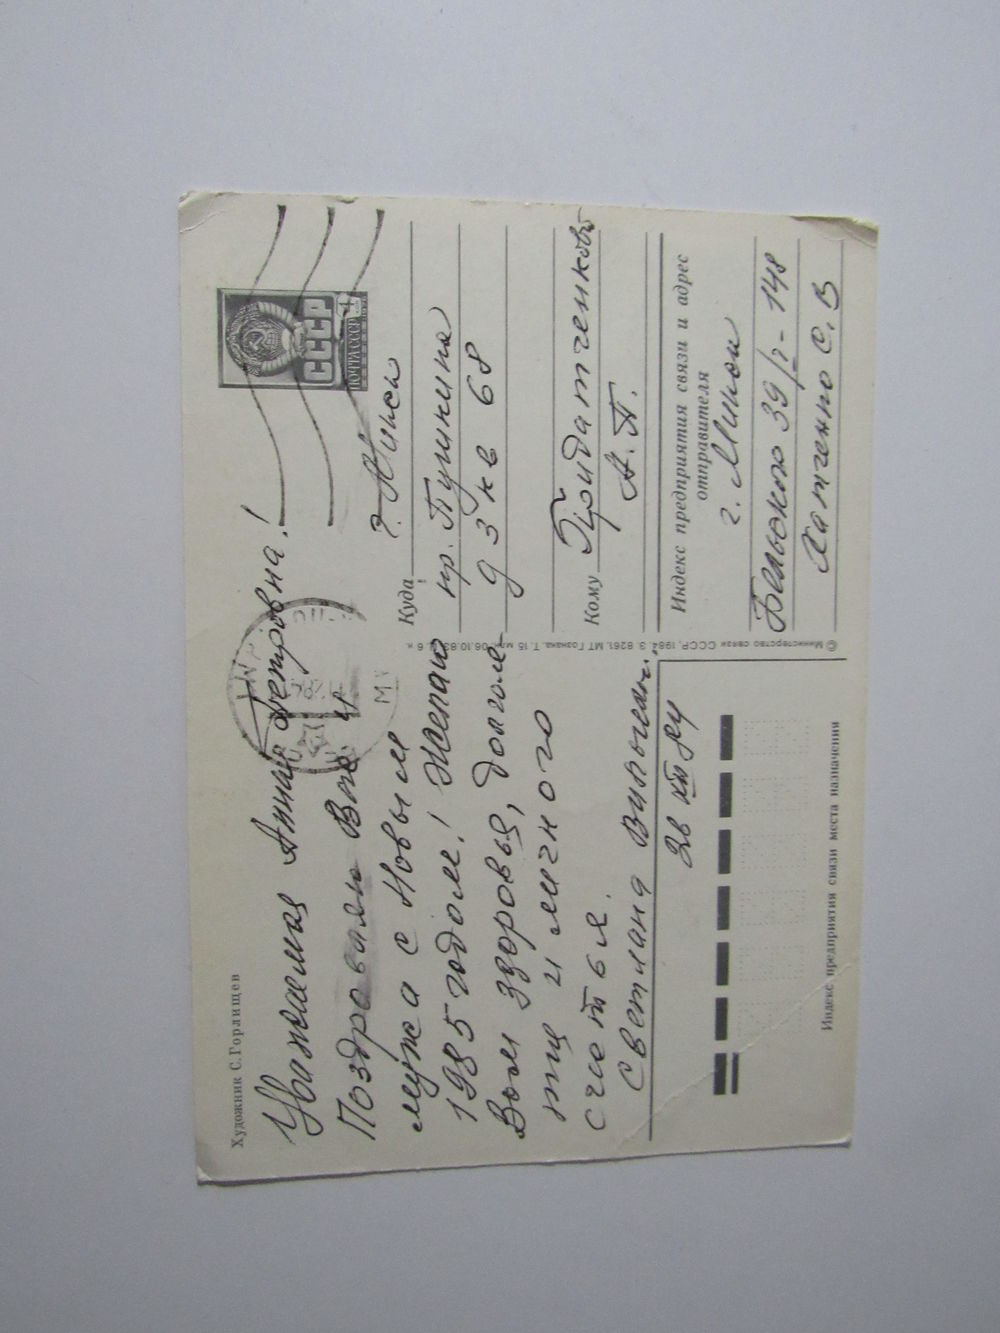 Художник С.Горлищев
Уважаемая Анна Петровна!
Поздравляю Вас и
мужа с Новым
1985 годом! Желаю
Вам здоровья, долголе-
тия и личного
счастья.
Светлана
СССР
ПОЧТА СССР
г. Минск
Куда
пр. Пушкина
д 3 кв 68
Кому Придатченковой
А. П.
Индекс предприятия связи и адрес
отправителя
г. Минск
39/2-148
Хатченко С. В
© Министерство связи СССР, 1984. З. 8261. МТ Гознака. Т. 15 млн. 08.10.83. Ц. 6 к.
Индекс предприятия связи места назначения